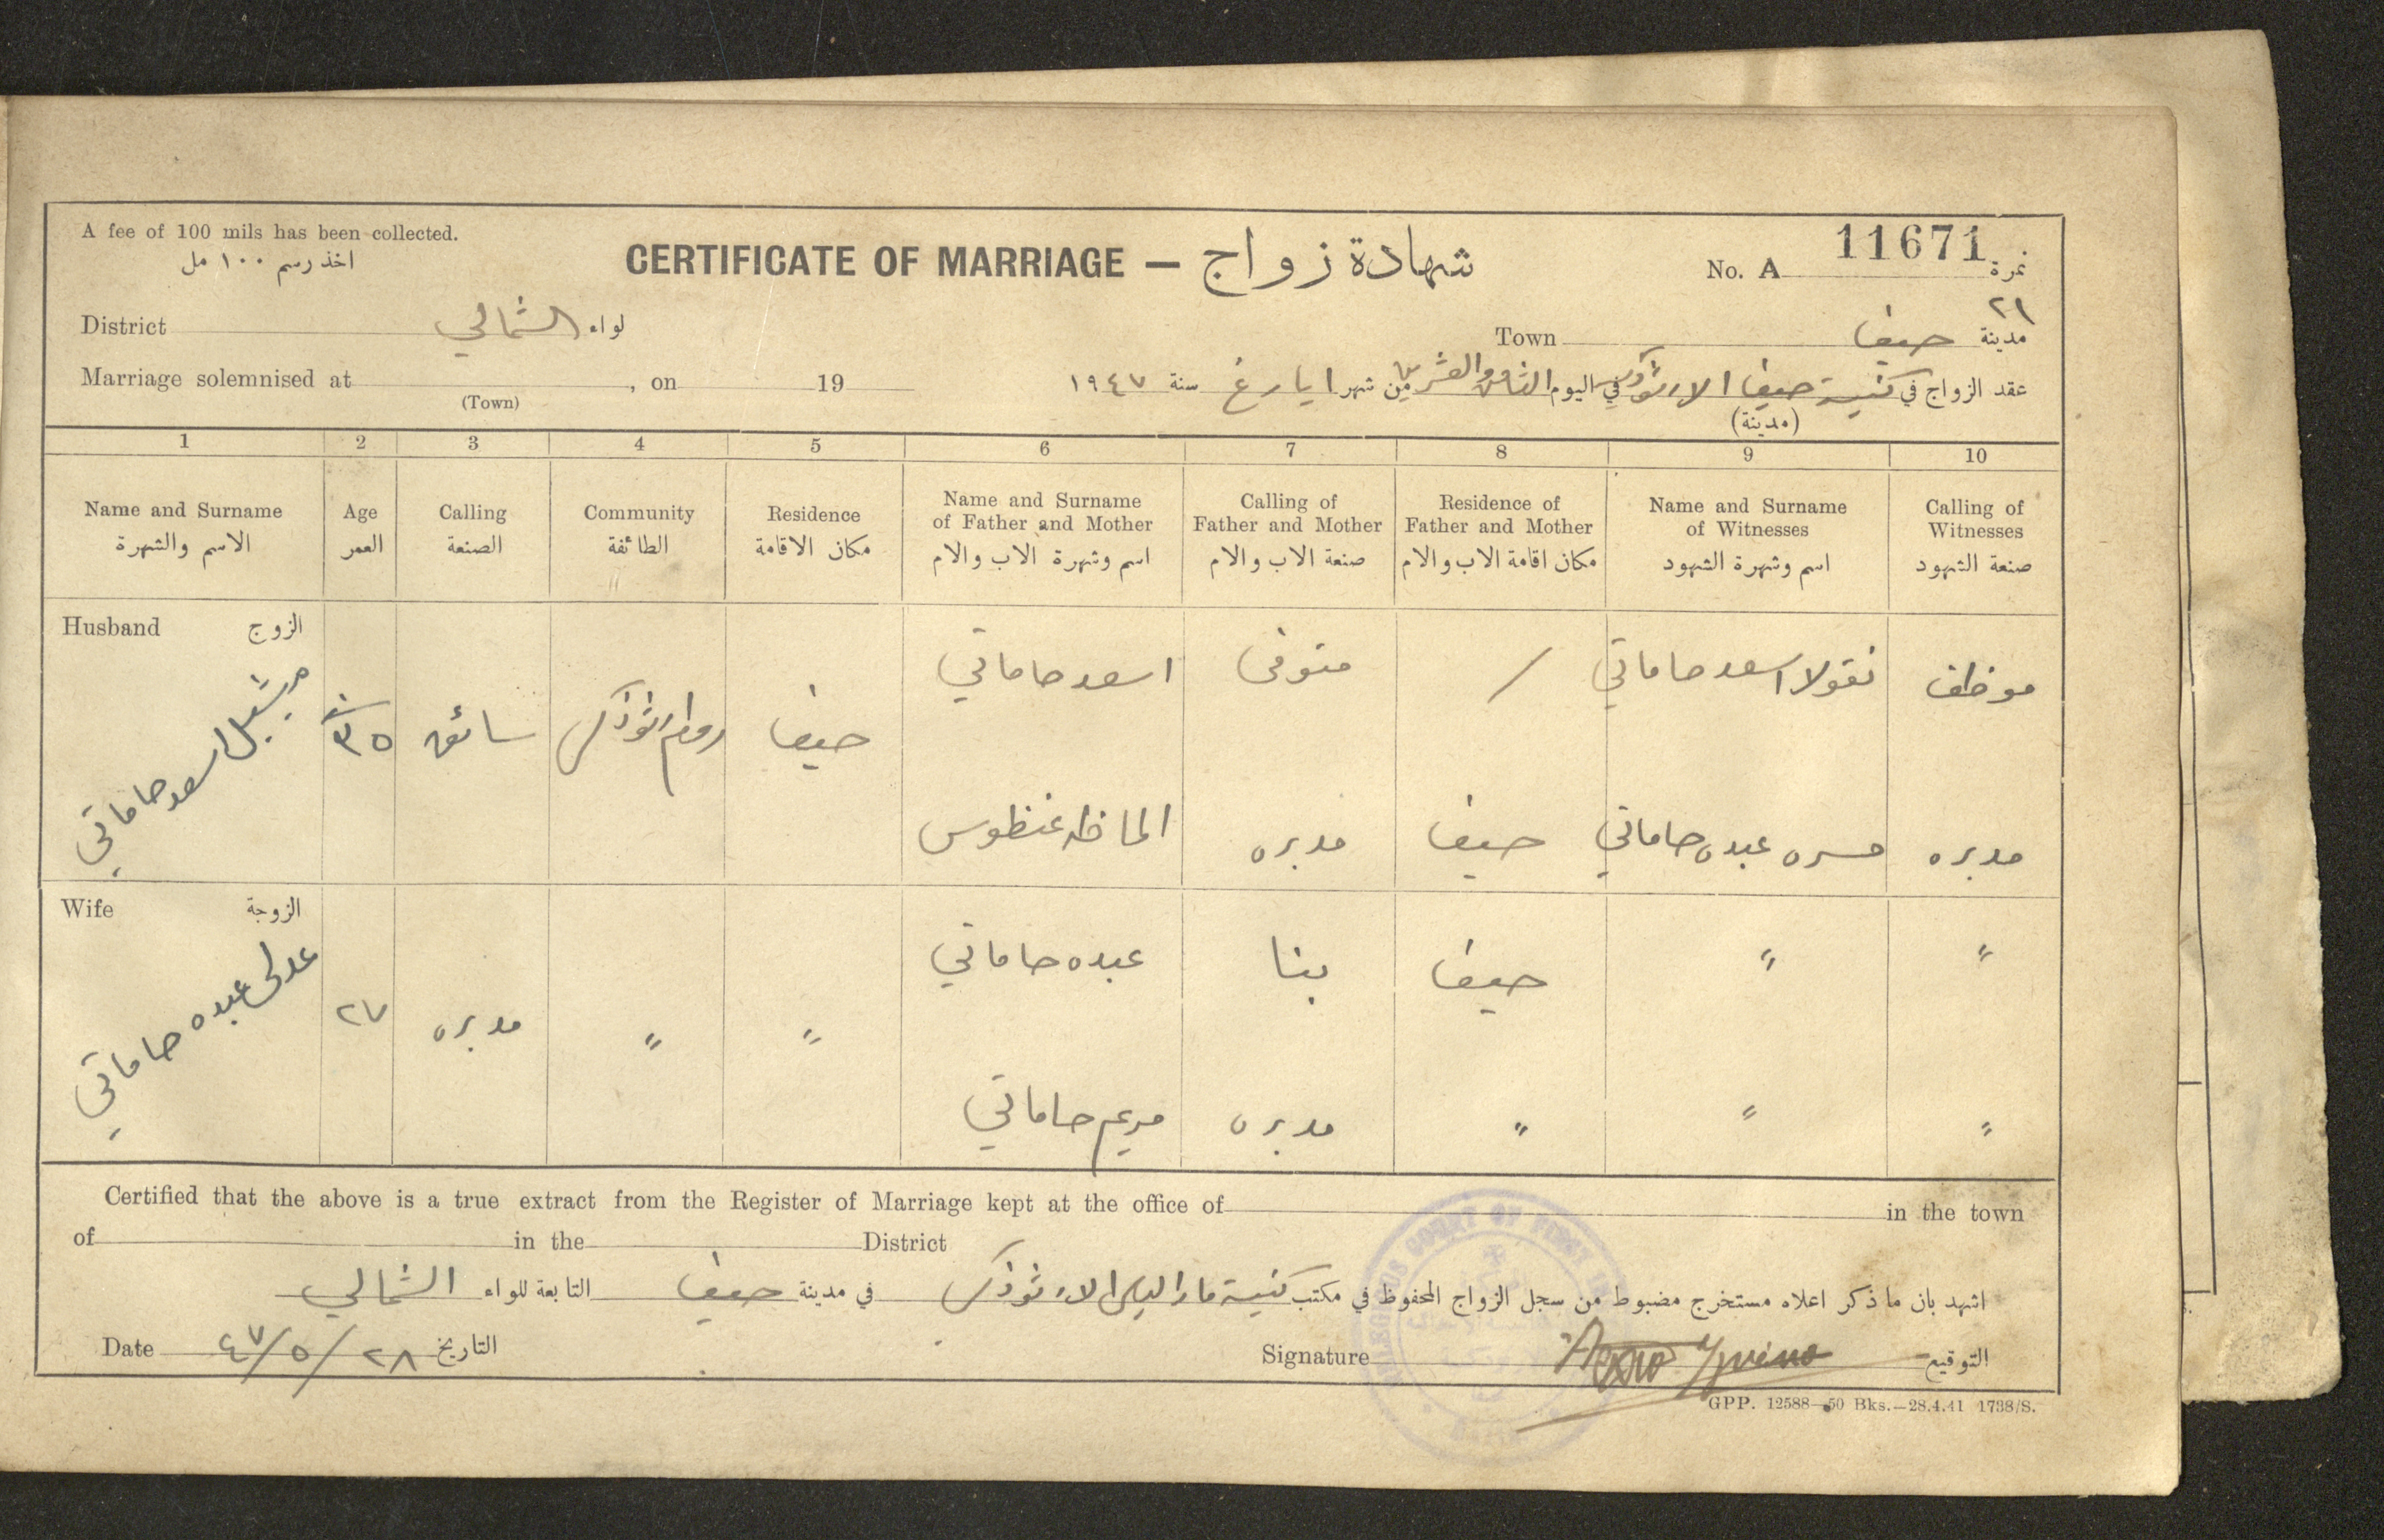 A fee of 100 mils has been collected.
اخذ رسم ١٠٠ مل
CERTIFICATE OF MARRIAGE — شهادة زواج
No. A 11671 نمرة
٢١
District الشمالي لواء
Town حيفا مدينة
Marriage solemnised at , on 19
(Town)
عقد الزواج في كنيسة حيفا الارثوذكسية في اليوم الثامن والعشرين من شهر ايار غ سنة ١٩٤٧
(مدينة)
1 2 3 4 5 6 7 8 9 10
Name and Surname
الاسم والشهرة
Age
العمر
Calling
الصنعة
Community
الطائفة
Residence
مكان الاقامة
Name and Surname
of Father and Mother
اسم وشهرة الاب والام
Calling of
Father and Mother
صنعة الاب والام
Residence of
Father and Mother
مكان اقامة الاب والام
Name and Surname
of Witnesses
اسم وشهرة الشهود
Calling of
Witnesses
صنعة الشهود
Husband الزوج
ميشيل اسعد حاماتي
٣٥
سائق
روم ارثوذكس
حيفا
اسعد حاماتي
متوفى
/
نقولا اسعد حاماتي
موظف
غنطوس
مدبره
حيفا
عبده حاماتي
مدبره
Wife الزوجة
عبده حاماتي
٢٧
مدبره
"
"
عبده حاماتي
بنا
حيفا
"
"
مريم حاماتي
مدبره
"
"
"
Certified that the above is a true extract from the Register of Marriage kept at the office of in the town
of in the District
اشهد بان ما ذكر اعلاه مستخرج مضبوط من سجل الزواج المحفوظ في مكتب كنيسة مار الياس الارثوذكس في مدينة حيفا التابعة للواء الشمالي
Date ٤٧/٥/٢٨ التاريخ
Signature التوقيع
GPP. 12588—50 Bks.—28.4.41 1738/S.